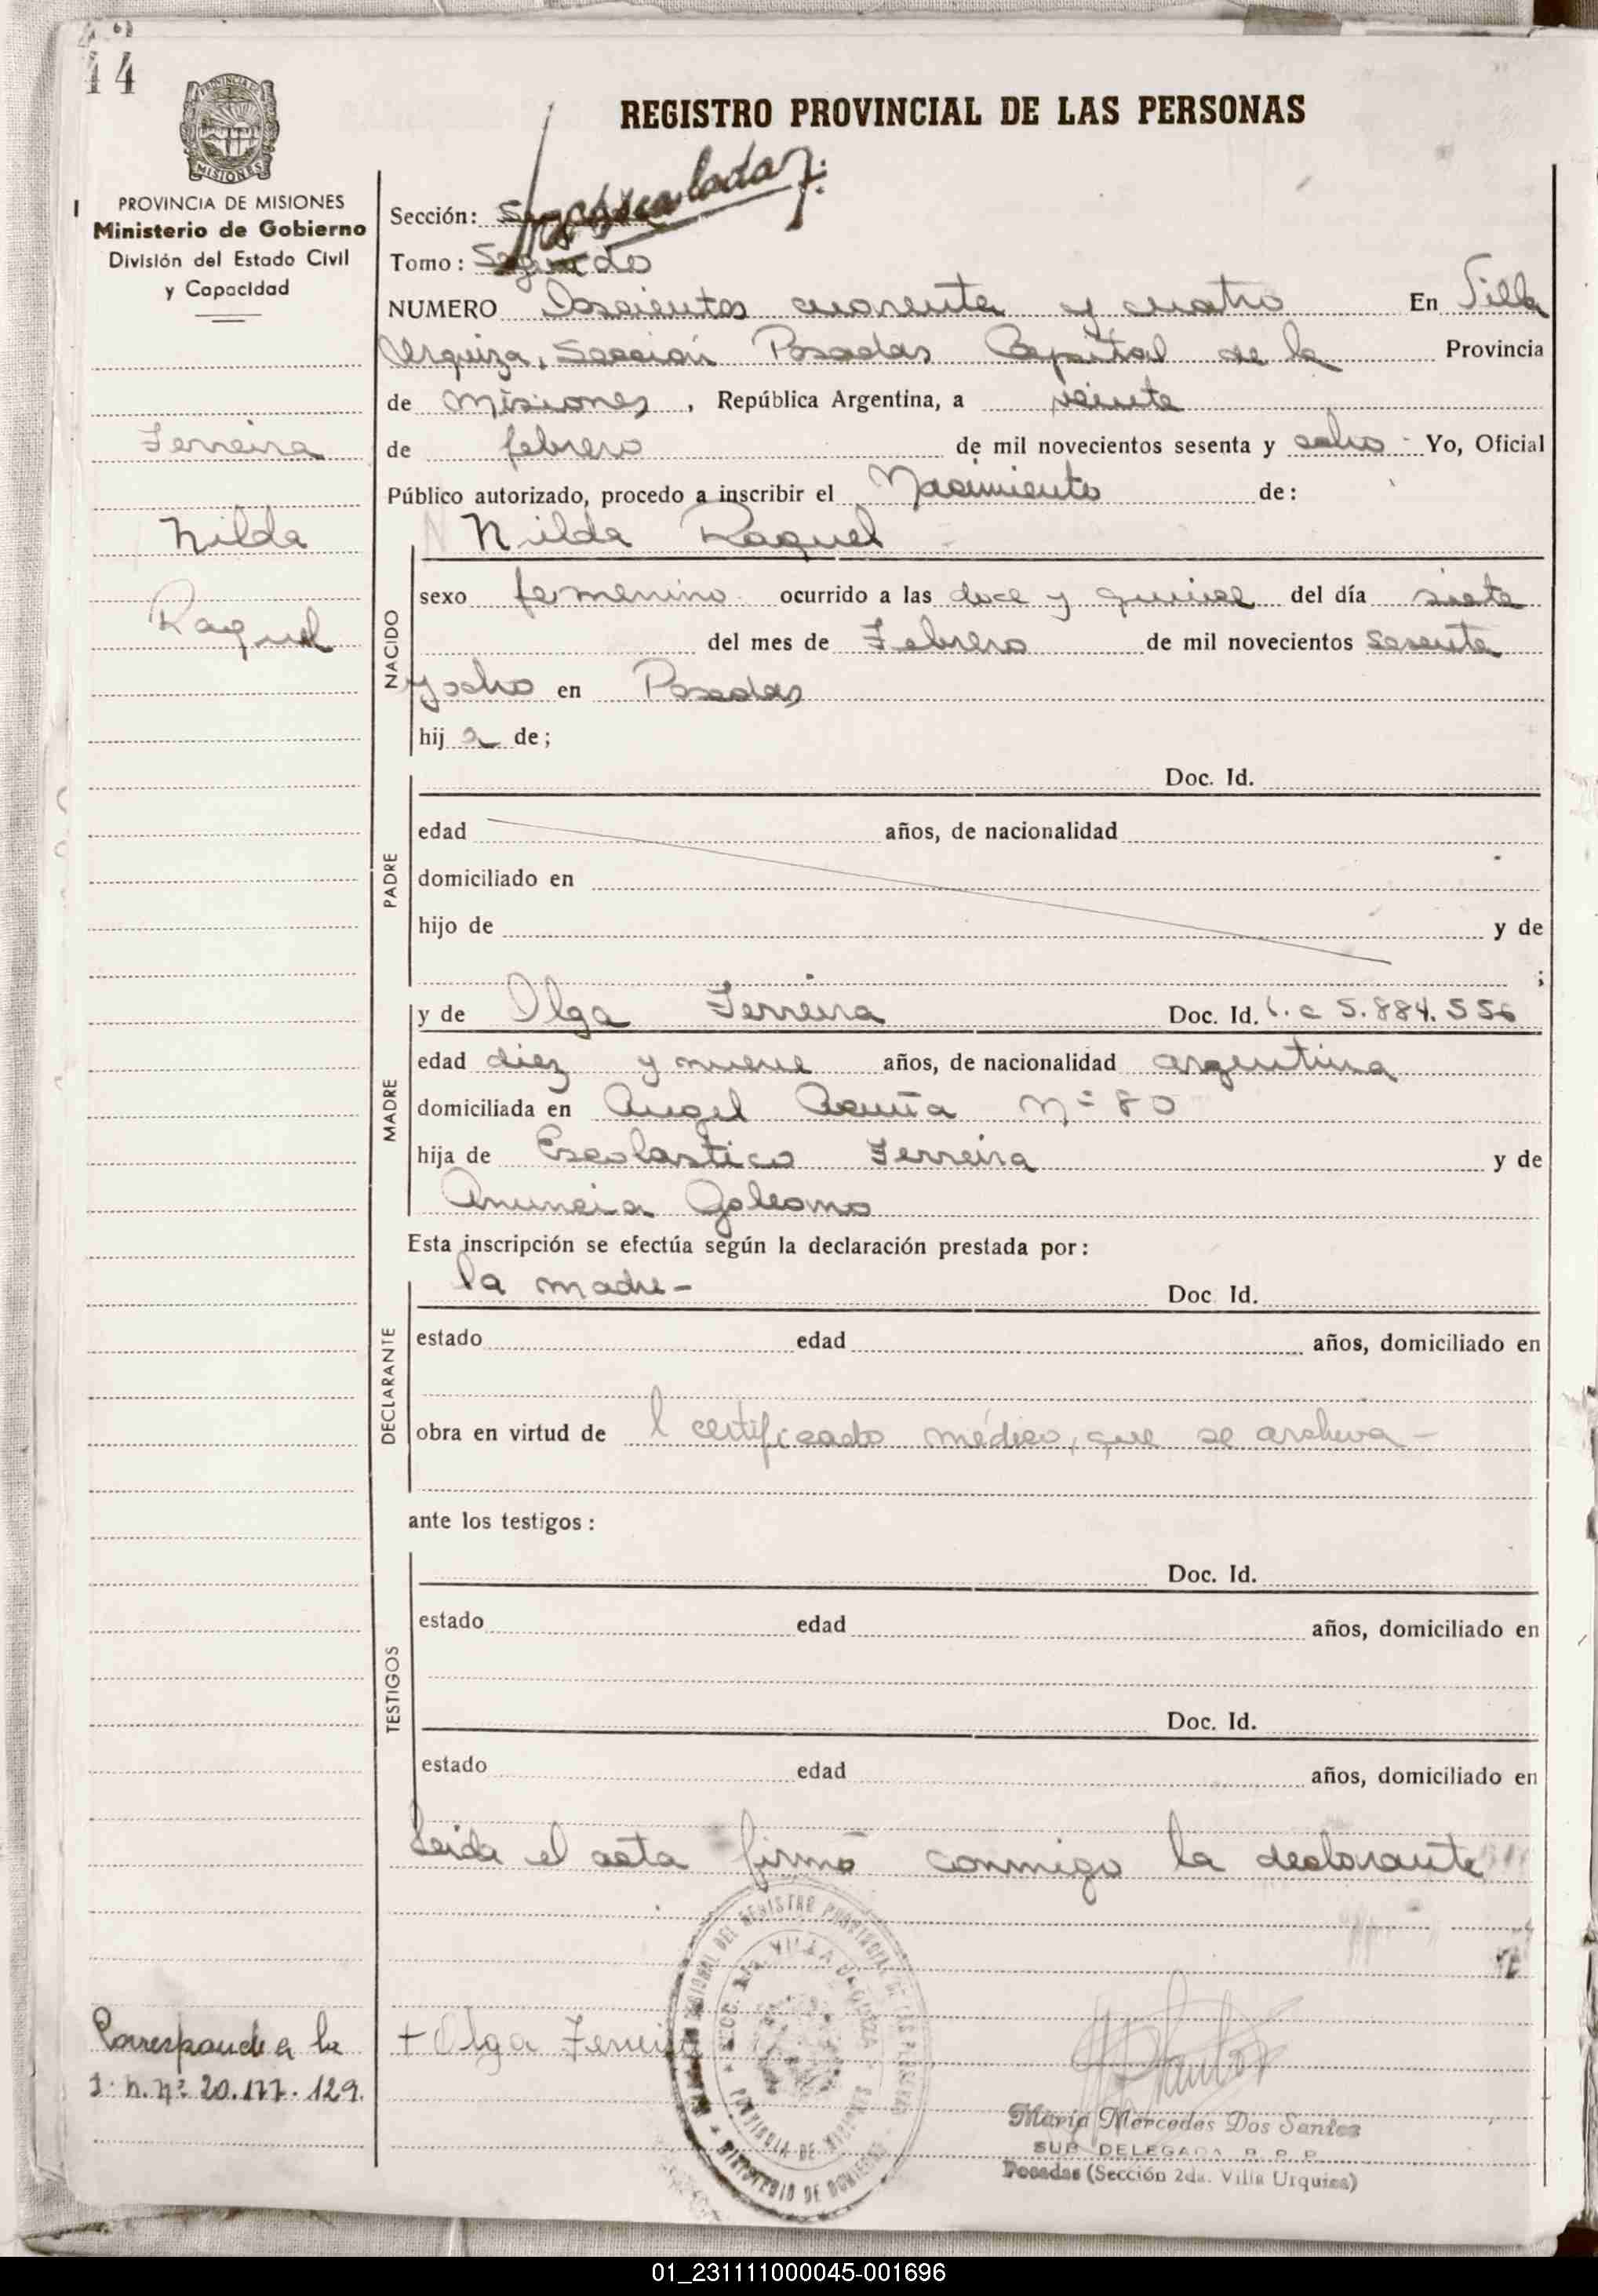 44
PROVINCIA DE MISIONES
Ministerio de Gobierno
División del Estado Civil
y Capacidad
REGISTRO PROVINCIAL DE LAS PERSONAS
Sección:
Tomo: Segundo
NUMERO Doscientos cuarenta y cuatro En Villa
Urquiza, Sección Posadas Capital de la Provincia
de Misiones, República Argentina, a veinte
de febrero de mil novecientos sesenta y ocho - Yo, Oficial
Público autorizado, procedo a inscribir el Nacimiento de:
Ferreira
Nilda
Raquel
NACIDO
Nilda Raquel
sexo femenino ocurrido a las doce y quince del día siete
del mes de Febrero de mil novecientos sesenta
y ocho en Posadas
hij a de;
PADRE
Doc. Id.
edad años, de nacionalidad
domiciliado en
hijo de y de
;
MADRE
y de Olga Ferreira Doc. Id. L.C 5.884.556
edad diez y nueve años, de nacionalidad argentina
domiciliada en Angel Acuña Nº 80
hija de Escolastico Ferreira y de
Anuncia Goleomo
Esta inscripción se efectúa según la declaración prestada por:
DECLARANTE
la madre - Doc. Id.
estado edad años, domiciliado en
obra en virtud de l certificado médico, que se archiva -
ante los testigos:
TESTIGOS
Doc. Id.
estado edad años, domiciliado en
Doc. Id.
estado edad años, domiciliado en
Leida el acta firmó conmigo la declarante
Corresponde a la
I. N. Nº 20.177.129.
+ Olga Ferreira
REGISTRO PROVINCIAL DE LAS PERSONAS
VILLA URQUIZA
PROVINCIA DE MISIONES
MINISTERIO DE GOBIERNO
Maria Mercedes Dos Santos
SUB DELEGADA R. P. P.
Posadas (Sección 2da. Villa Urquiza)
01_231111000045-001696